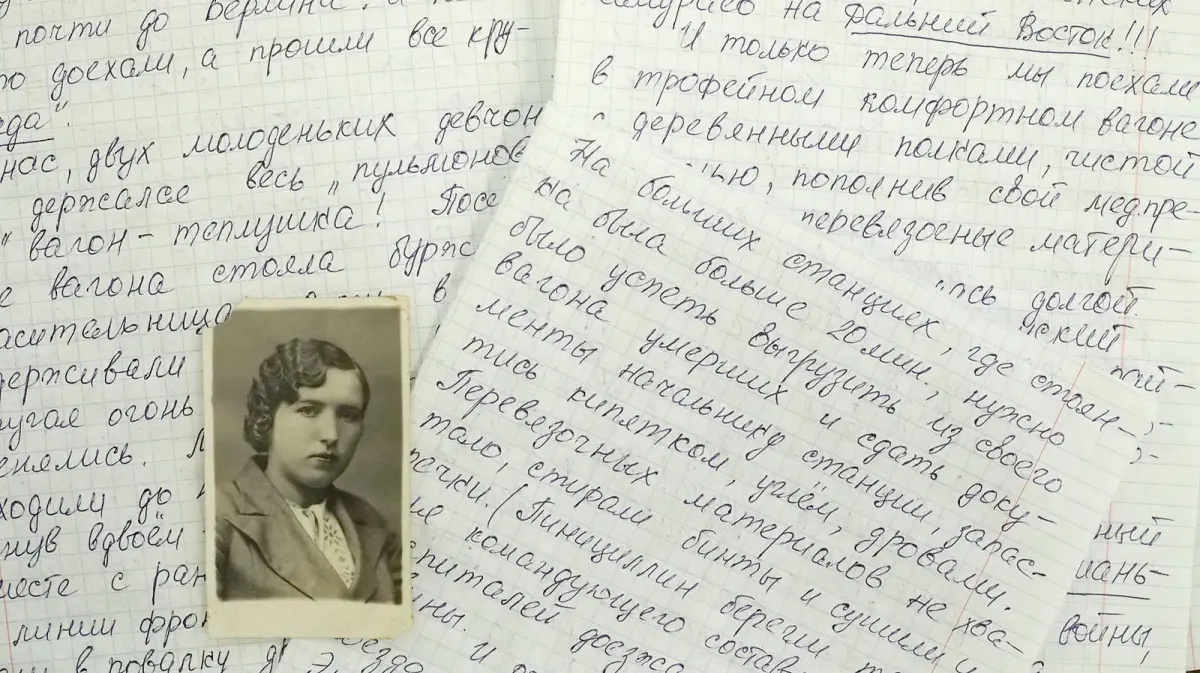 почти до Берлина. а
доехали, а прошли все кру-
да".
нас, двух молоденьких девчон
держалсе весь „пульмонов
" вагон-теплушка! Посе
вагона стояла бурж
асительница
держивали
ругая огонь
енялись.
ходили до
нув вдвоём
месте с ран
линии фрон
в повалку
на Дальний Восток!!!
И только теперь мы поехали
в трофейном комфортном вагоне
с деревянными полками, чистой
ью, пополнив свой медпре-
перевязоеные матери-
На больших станциях, где стоян-
ка была больше 20 мин., нужно
было успеть выгрузить из своего
вагона умерших и сдать доку-
менты начальнику станции, запас-
тись кипятком, углём, дровами.
Перевязочных материалов не хва-
тало, стирали бинты и сушили у
печки. (Пинициллин берегли
командующего состав
спиталей доезжа
долгой.
ный
войны,